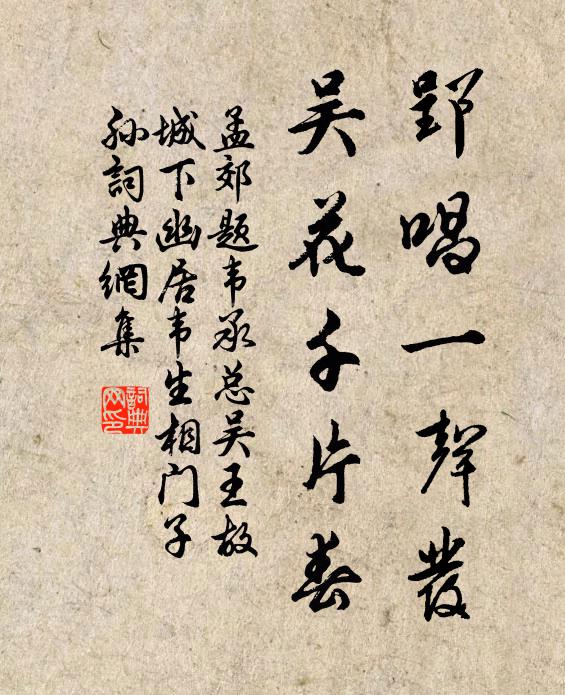 郢唱一聲發
吴花千片春
孟郊题韦承总吴王故
城下幽居韦生相门子
孙詞典網集
詞典网印